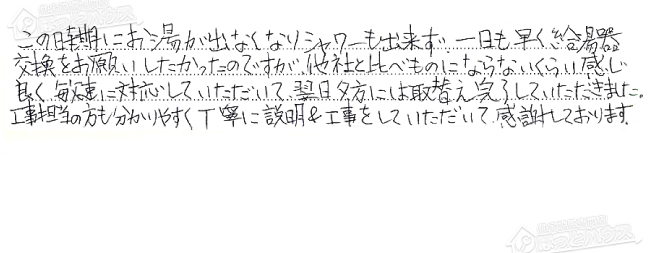 この時期にお湯が出なくなりシャワーも出来ず、一日も早く給湯器
交換をお願いしたかったのですが、他社と比べものにならないくらい感じ
良く、敏速に対応していただいて、翌日夕方には取替え完了していただきました。
工事担当の方も分かりやすく丁寧に説明&工事をしていただいて、感謝しております。